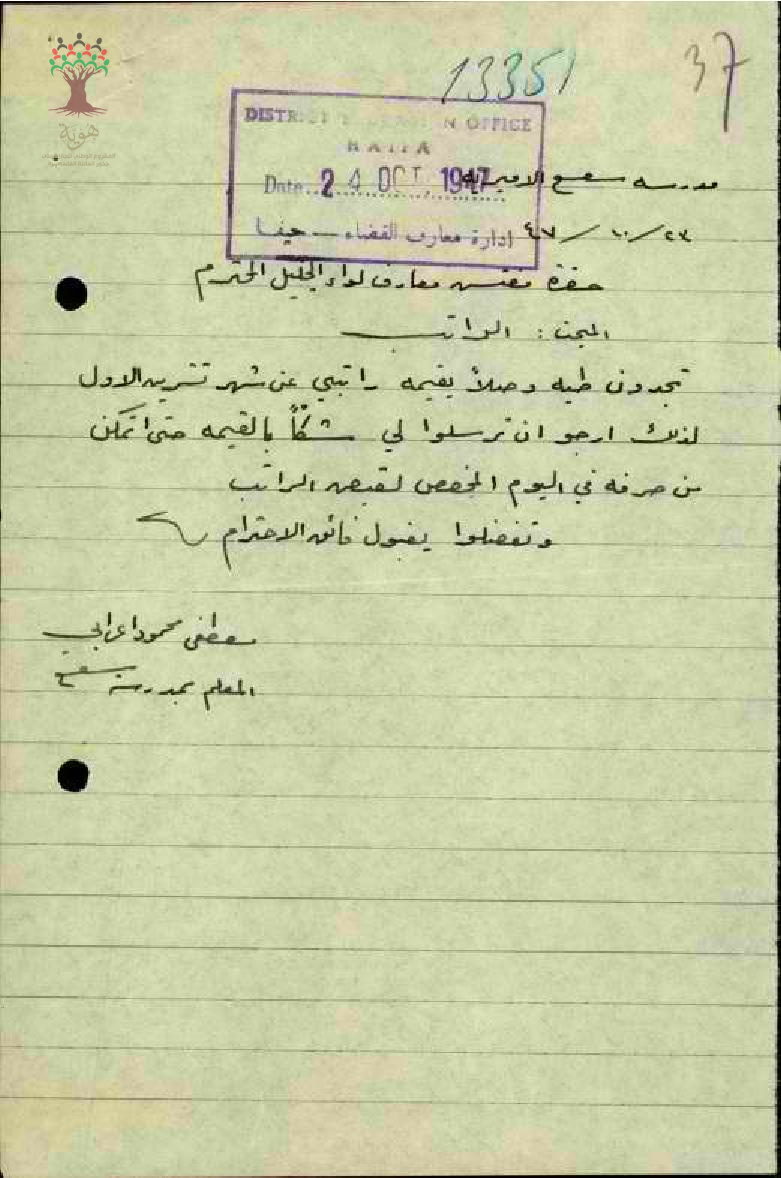 37
13351
DISTRICT EDUCATION OFFICE
HAIFA
Date 24 OCT. 1947
ادارة معارف القضاء — حيفا
هوية
مدرسه سعسع الاميريه
٢٣ / ١٠ / ٤٧
حضرة مفتش معارف لواء الجليل المحترم
المبحث : الراتب
تجدون طيه وصلاً بقيمه راتبي عن شهر تشرين الاول
لذلك ارجو ان ترسلوا لي شكّاً بالقيمه حتى اتمكن
من صرفه في اليوم المخصص لقبض الراتب
وتفضلوا بقبول فائق الاحترام
مصطفى محمود اعرابي
المعلم بمدرسة سعسع